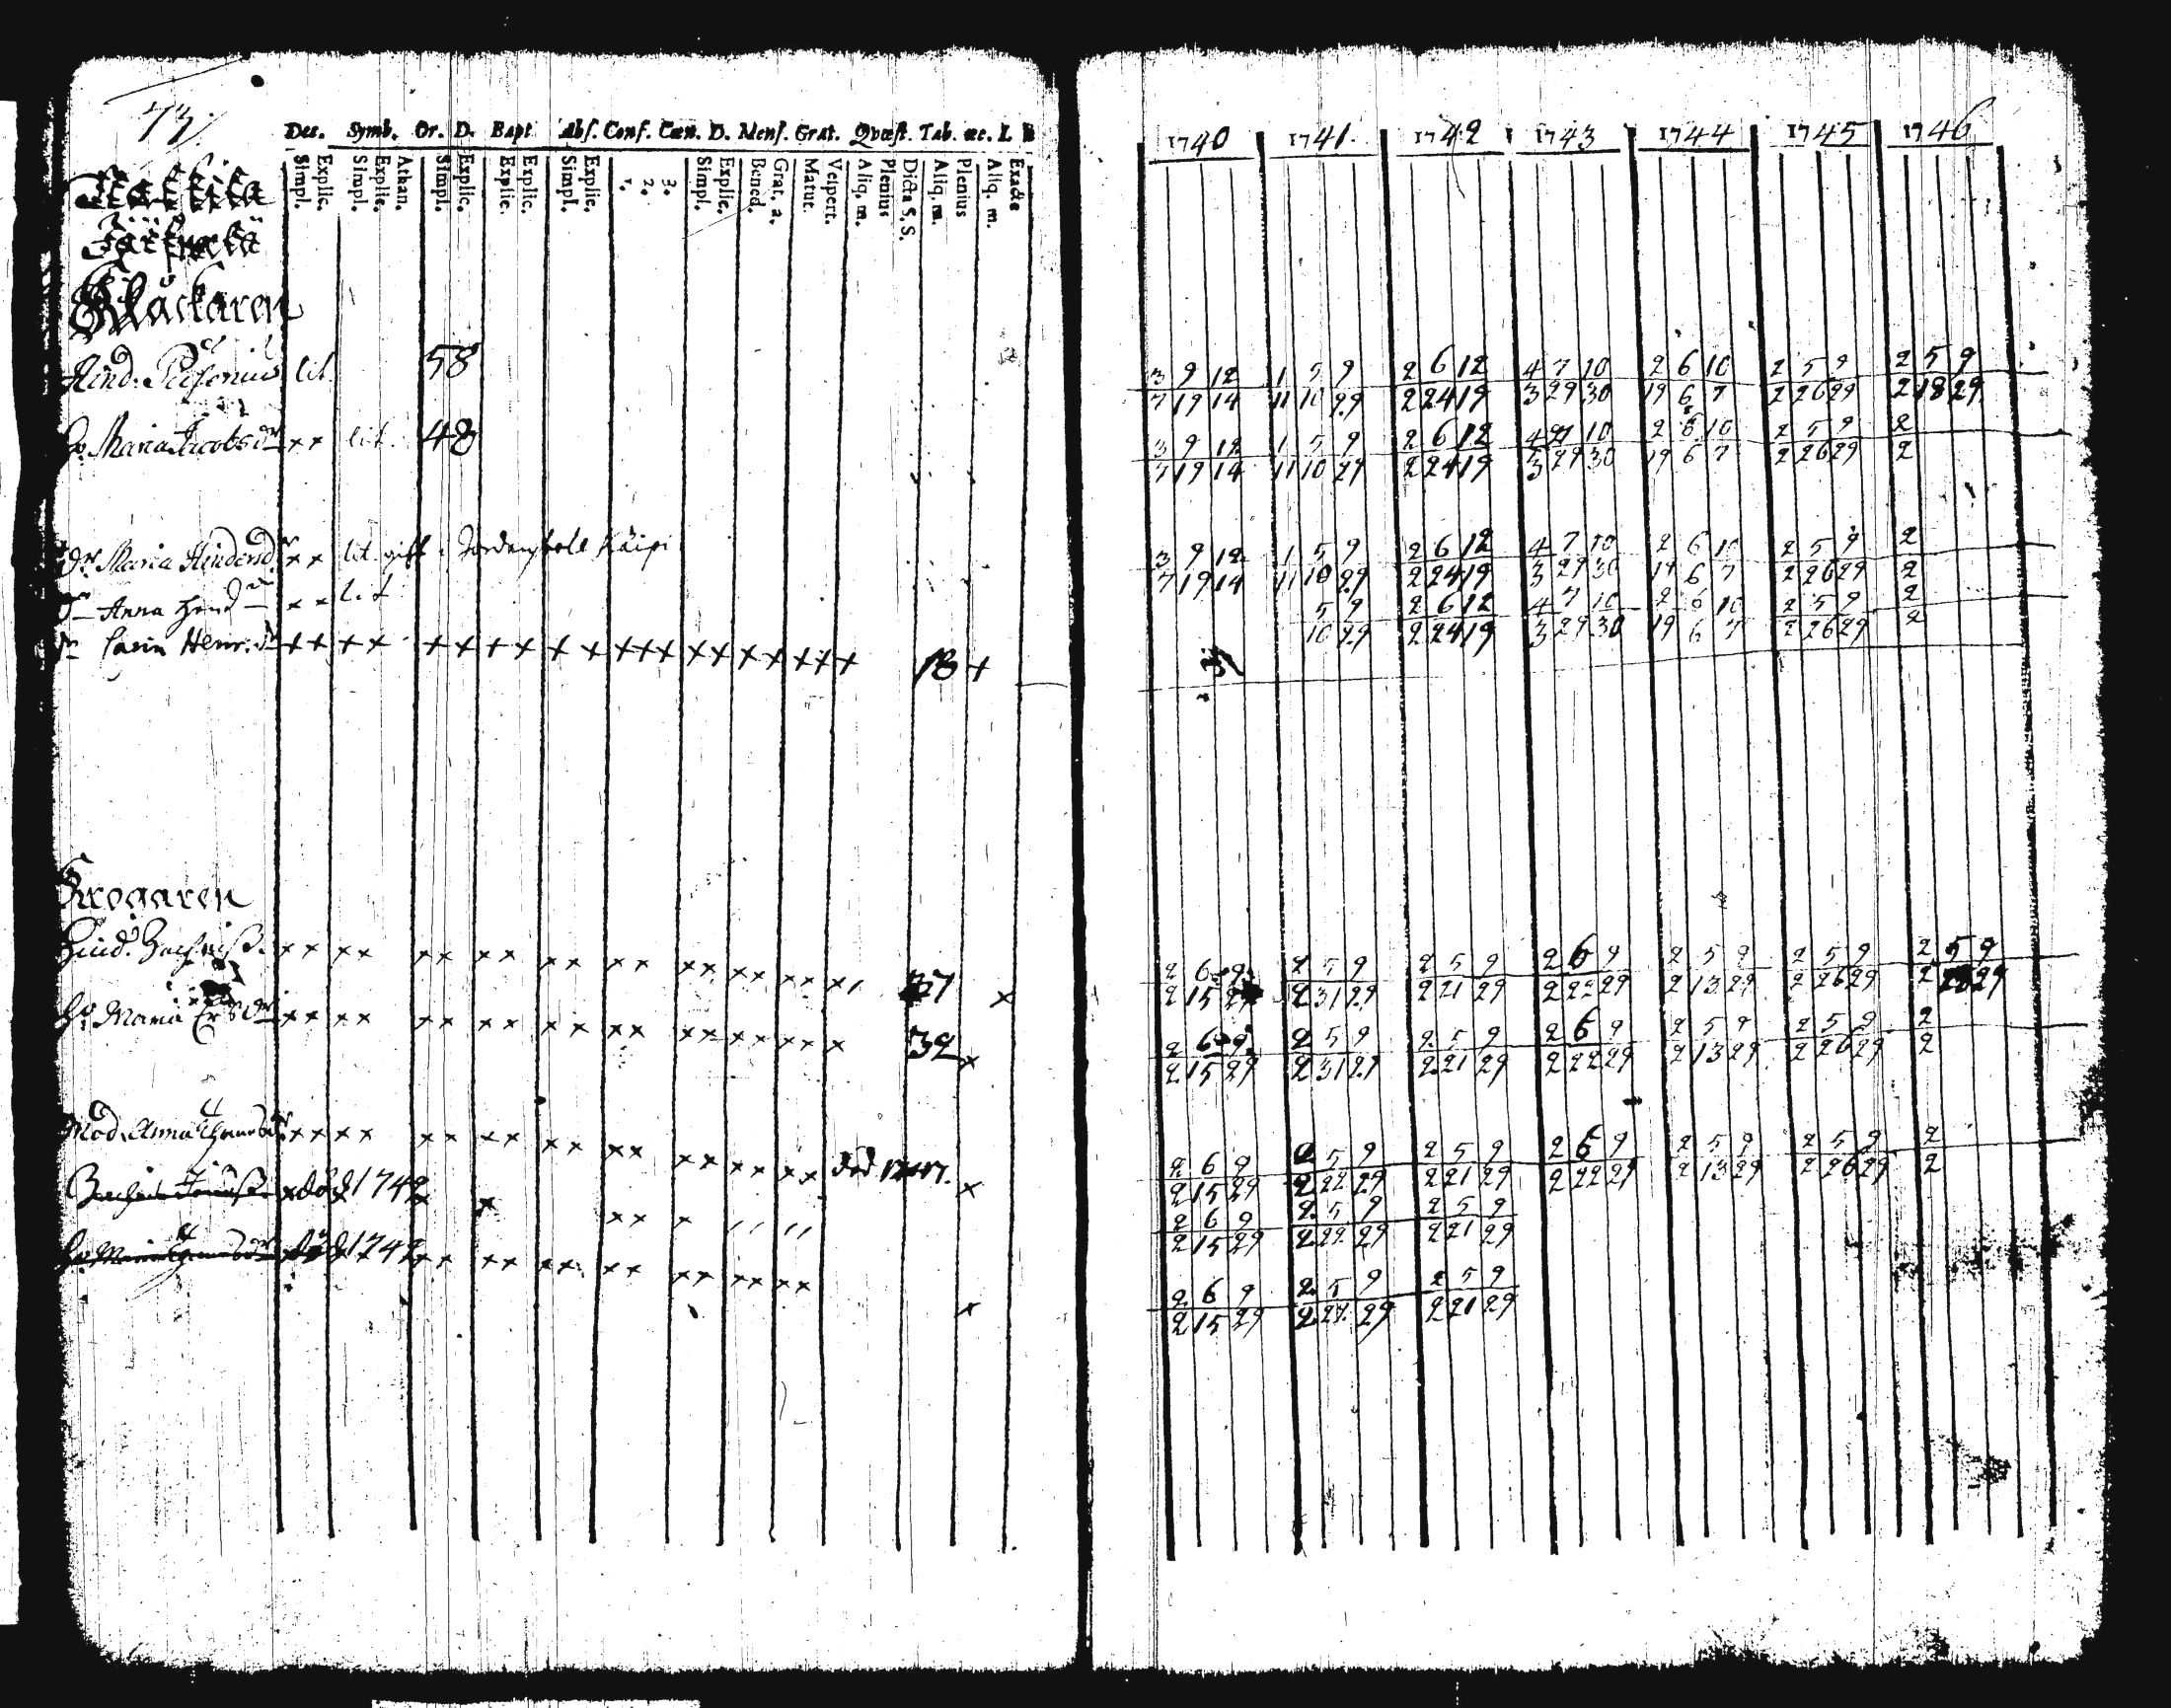 73.
Des. Symb. Or. D. Bapt Abs. Conf. Cœn. D. Mens. Grat. Qvæst. Tab. œc. L
Simpl. Explic. Simpl. Explic. Athan. Simpl. Explic. Explic. Explic. Simpl. Explic. 1. 2. 3. Simpl. Explic. Bened. Grat. a. Matut. Vespert. Aliq. m. Plenius Dicta S. S. Aliq. m. Plenius Aliq. m. Exacte
1740 1741. 1742 1743 1744 1745 1746
Klåckaren
Hind: lit. 58
3 9 12 1 5 9 2 6 12 4 7 10 2 6 10 2 5 9 2 5 9
7 19 14 11 10 29 2 24 19 3 29 30 19 6 7 2 26 29 2 18 29
H: Maria Jacobsdr x x lit. 48
3 9 12 1 5 9 2 6 12 4 7 10 2 6 10 2 5 9 2
7 19 14 11 10 29 2 24 19 3 29 30 19 6 7 2 26 29 2
Dr Maria Hindersdr x x lit. gift
3 9 12 1 5 9 2 6 12 4 7 10 2 6 10 2 5 9 2
7 19 14 11 10 29 2 24 19 3 29 30 19 6 7 2 26 29 2
Dr Anna Hend x x lit
5 9 2 6 12 4 7 10 2 6 10 2 5 9 2
10 29 2 24 19 3 29 30 19 6 7 2 26 29 2
Dr Carin Henr. dr x x x x x x x x x x x x x x x x x x x x 18 x
Krogaren
Hind. x x x x x x x x x x x x x x x x x x x 37 x
2 6 9 2 5 9 2 5 9 2 6 9 2 5 9 2 5 9 2 5 9
2 15 29 2 31 29 2 21 29 2 22 29 2 13 29 2 26 29 2 29
H: Maria Ersdr x x x x x x x x x x x x x x x x x x x 32 x
2 6 9 2 5 9 2 5 9 2 6 9 2 5 9 2 5 9 2
2 15 29 2 31 29 2 21 29 2 22 29 2 13 29 2 26 29 2
Mod. Anna x x x x x x x x x x x x x x x x x x död 1747. x
2 6 9 2 5 9 2 5 9 2 6 9 2 5 9 2 5 9 2
2 15 29 2 22 29 2 21 29 2 22 29 2 13 29 2 26 29 2
död 1742 x x x x x
2 6 9 2 5 9 2 5 9
2 15 29 2 22 29 2 21 29
H: Maria död 1742 x x x x x x x x x x x x x x x
2 6 9 2 5 9 2 5 9
2 15 29 2 22 29 2 21 29